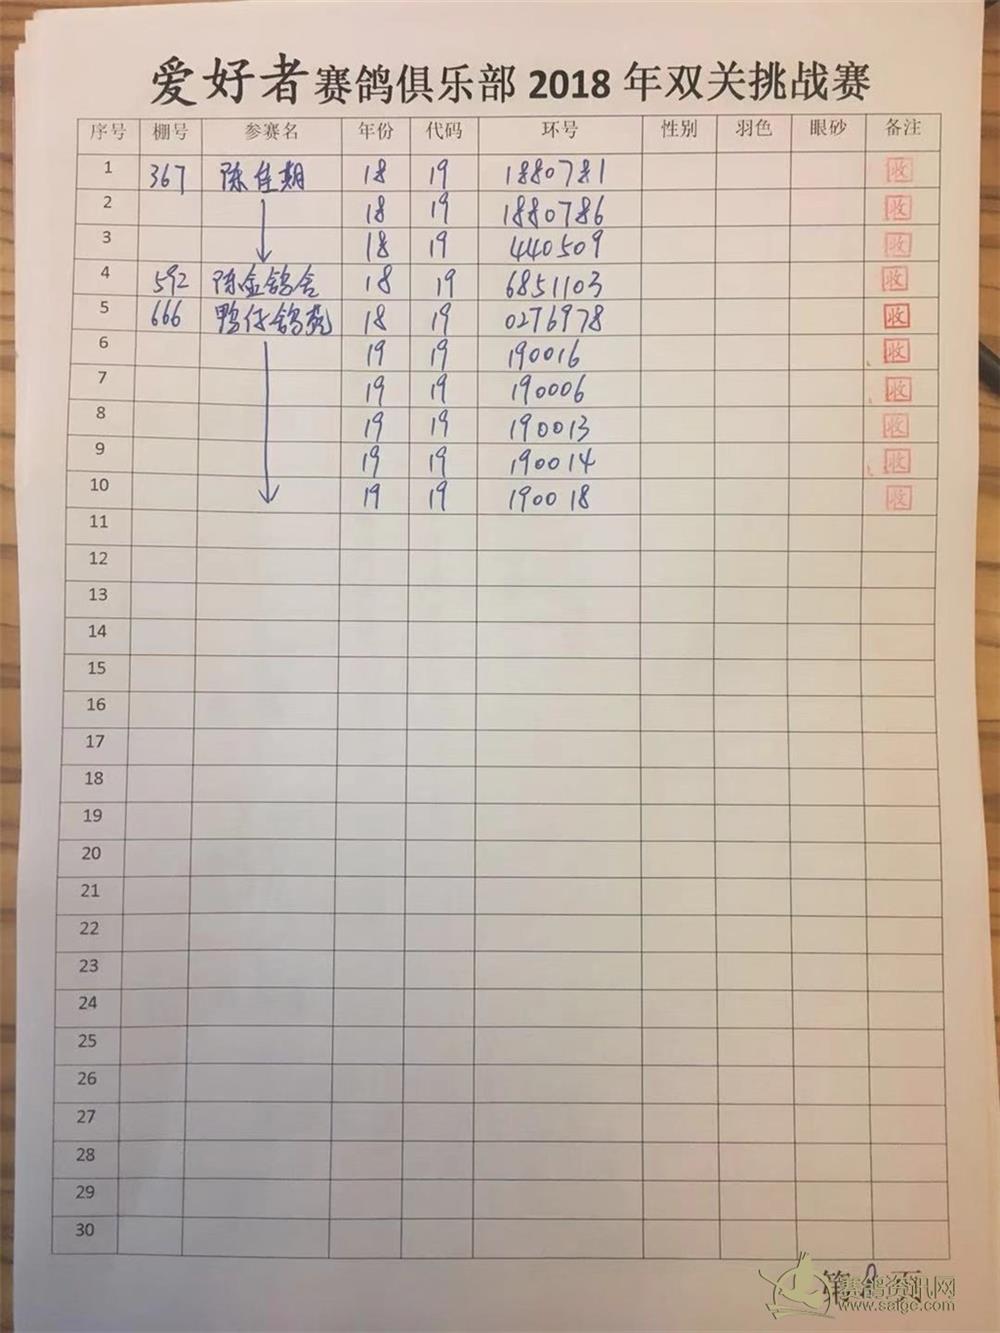 爱好者赛鸽俱乐部 2018 年双关挑战赛
序号 棚号 参赛名 年份 代码 环号 性别 羽色 眼砂 备注
1 367 陈佳期 18 19 1880781 收
2 18 19 1880786 收
3 18 19 440509 收
4 592 陈金鸽舍 18 19 6851103 收
5 666 鸭仔鸽苑 18 19 0276978 收
6 19 19 190016 收
7 19 19 190006 收
8 19 19 190013 收
9 19 19 190014 收
10 19 19 190018 收
11
12
13
14
15
16
17
18
19
20
21
22
23
24
25
26
27
28
29
30
第 页
赛鸽资讯网
www.saige.com